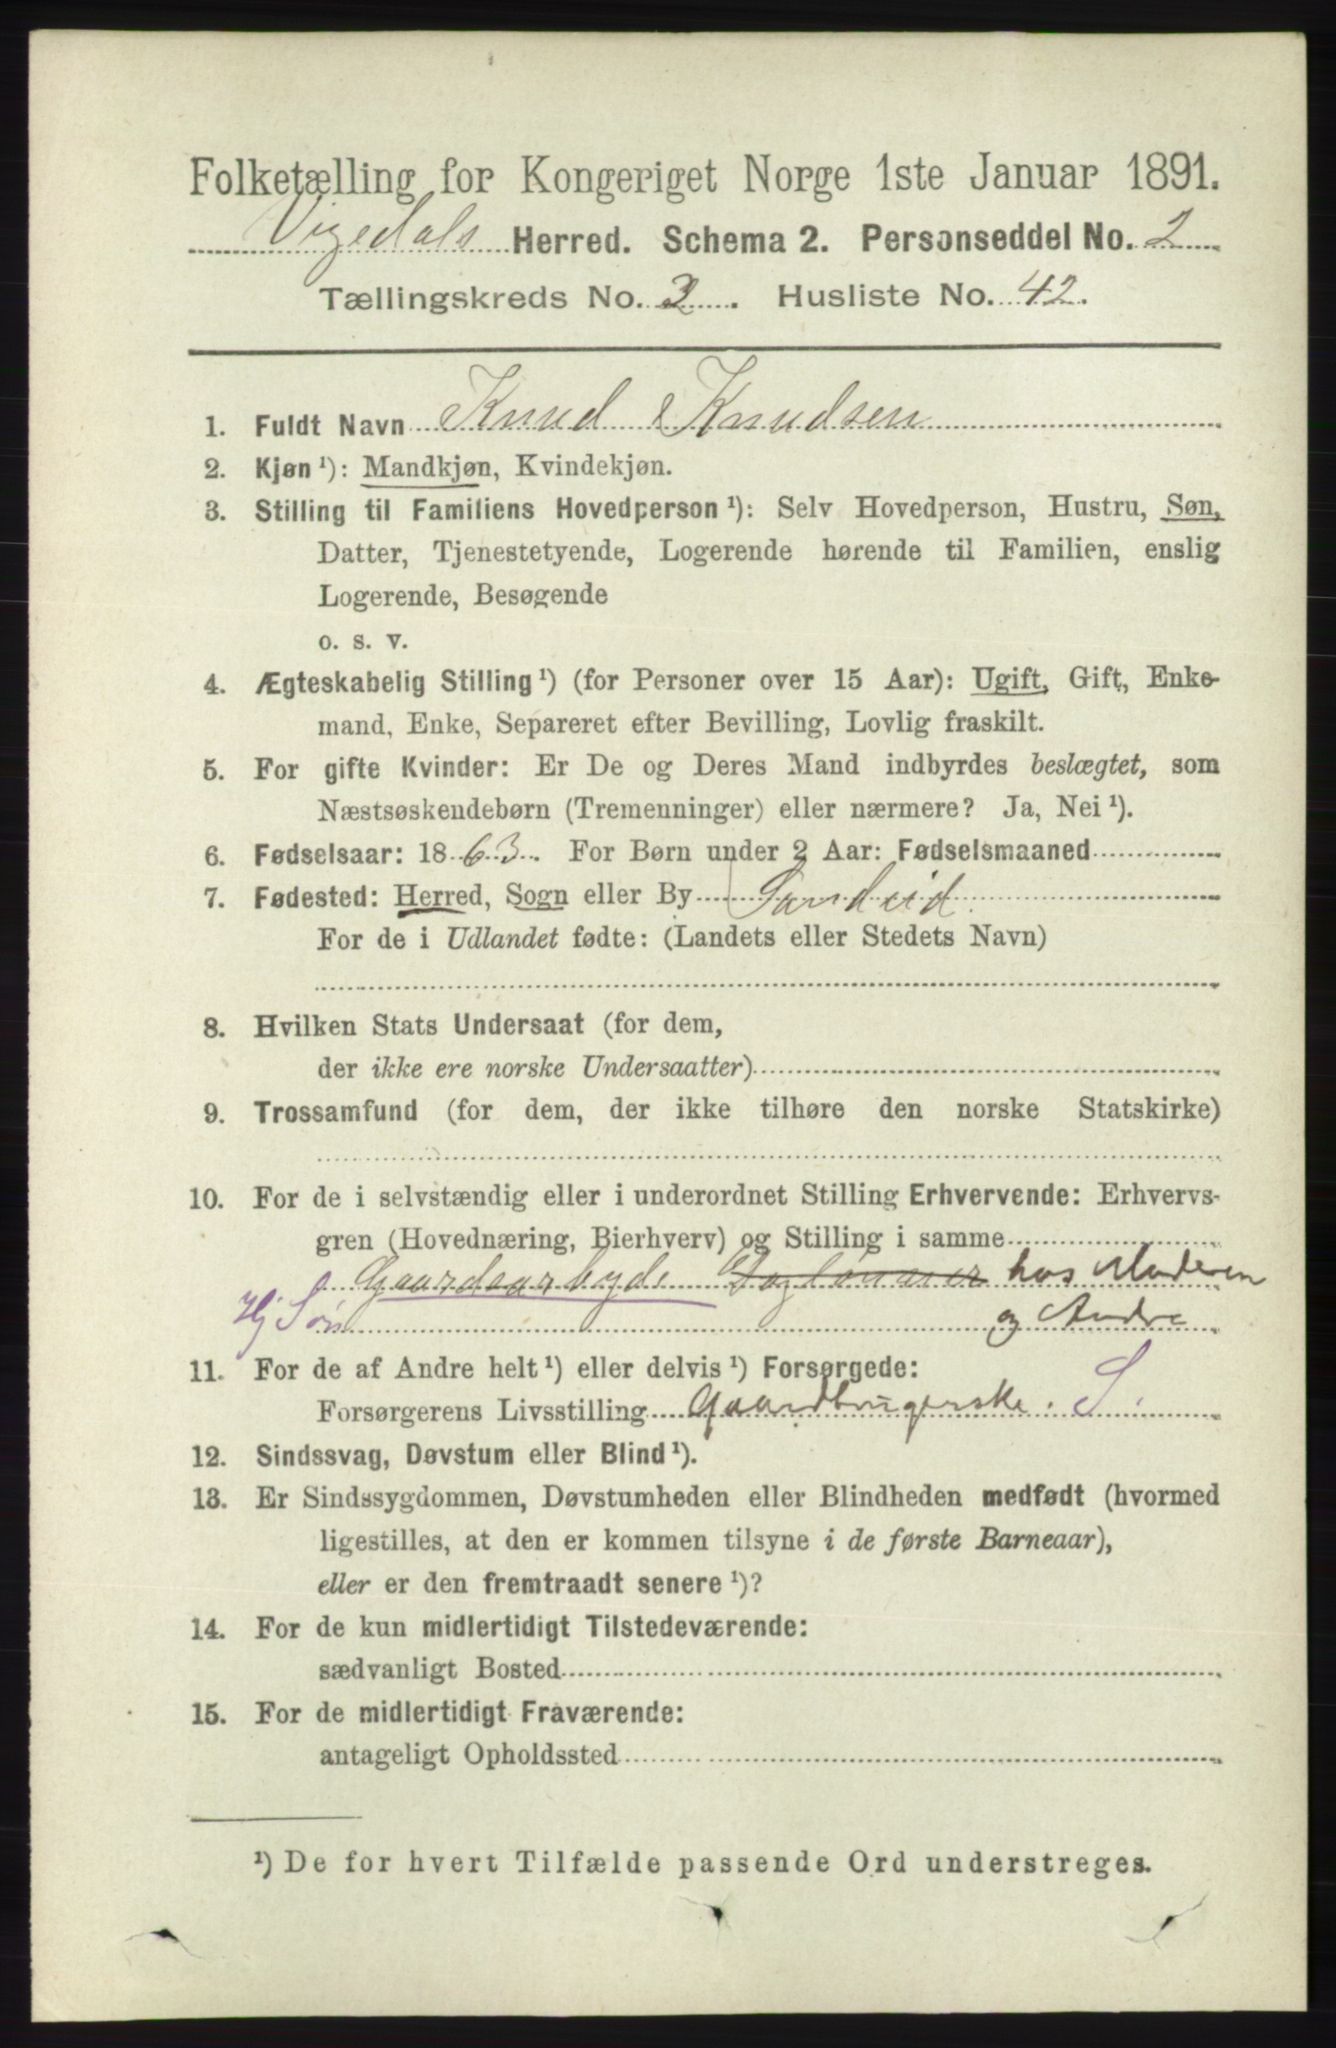 Folketælling for Kongeriget Norge 1ste Januar 1891.
Vigedals Herred. Schema 2. Personseddel No. 2
Tællingskreds No. 2. Husliste No. 42.
1. Fuldt Navn Knud Knudsen
2. Kjøn ¹): Mandkjøn, Kvindekjøn.
3. Stilling til Familiens Hovedperson ¹): Selv Hovedperson, Hustru, Søn,
Datter, Tjenestetyende, Logerende hørende til Familien, enslig
Logerende, Besøgende
o. s. v.
4. Ægteskabelig Stilling ¹) (for Personer over 15 Aar): Ugift, Gift, Enke-
mand, Enke, Separeret efter Bevilling, Lovlig fraskilt.
5. For gifte Kvinder: Er De og Deres Mand indbyrdes beslægtet, som
Næstsøskendebørn (Tremenninger) eller nærmere? Ja, Nei ¹).
6. Fødselsaar: 1863. For Børn under 2 Aar: Fødselsmaaned
7. Fødested: Herred, Sogn eller By Sandeid.
For de i Udlandet fødte: (Landets eller Stedets Navn)
8. Hvilken Stats Undersaat (for dem,
der ikke ere norske Undersaatter)
9. Trossamfund (for dem, der ikke tilhøre den norske Statskirke)
10. For de i selvstændig eller i underordnet Stilling Erhvervende: Erhvervs-
gren (Hovednæring, Bierhverv) og Stilling i samme
Gaardsarbyde Daglønner hos Moderen
Hj Søn og Andre
11. For de af Andre helt ¹) eller delvis ¹) Forsørgede:
Forsørgerens Livsstilling Gaardbrugerske. S.
12. Sindssvag, Døvstum eller Blind ¹).
13. Er Sindssygdommen, Døvstumheden eller Blindheden medfødt (hvormed
ligestilles, at den er kommen tilsyne i de første Barneaar),
eller er den fremtraadt senere ¹)?
14. For de kun midlertidigt Tilstedeværende:
sædvanligt Bosted
15. For de midlertidigt Fraværende:
antageligt Opholdssted
¹) De for hvert Tilfælde passende Ord understreges.